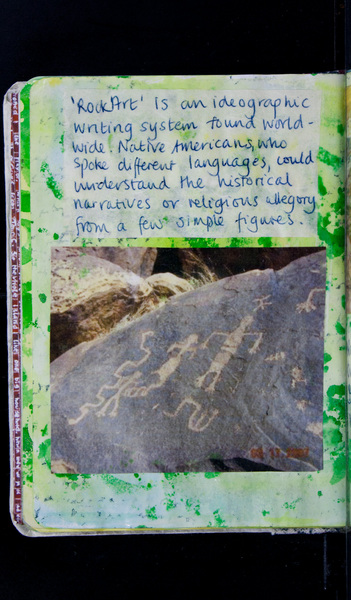 'RockArt' is an ideographic
writing system found world-
wide. Native Americans, who
spoke different languages, could
understand the historical
narratives or religious allegory
from a few simple figures.